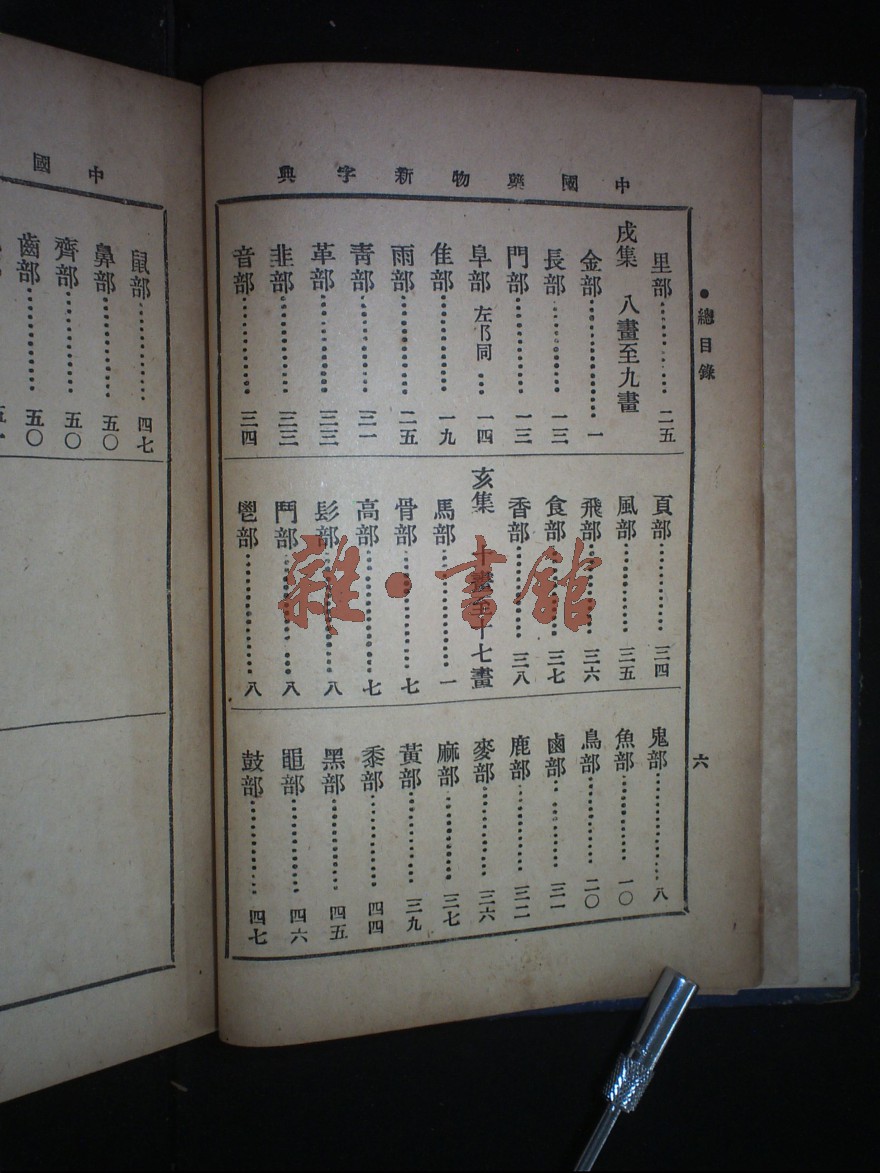 中國藥物新字典
●總目錄
六
里部 二五
戌集 八畫至九畫
金部 一
長部 一三
門部 一三
阜部 左阝同 一四
隹部 一九
雨部 二五
靑部 三一
革部 三三
韭部 三三
音部 三四
頁部 三四
風部 三五
飛部 三六
食部 三七
香部 三八
亥集 十畫至十七畫
馬部 一
骨部 七
高部 七
髟部 八
鬥部 八
鬯部 八
鬼部 八
魚部 一〇
鳥部 二〇
鹵部 三一
鹿部 三二
麥部 三六
麻部 三七
黃部 三九
黍部 四四
黑部 四五
黽部 四六
鼓部 四七
中國
鼠部 四七
鼻部 五〇
齊部 五〇
齒部 五〇
五一
雜·書館